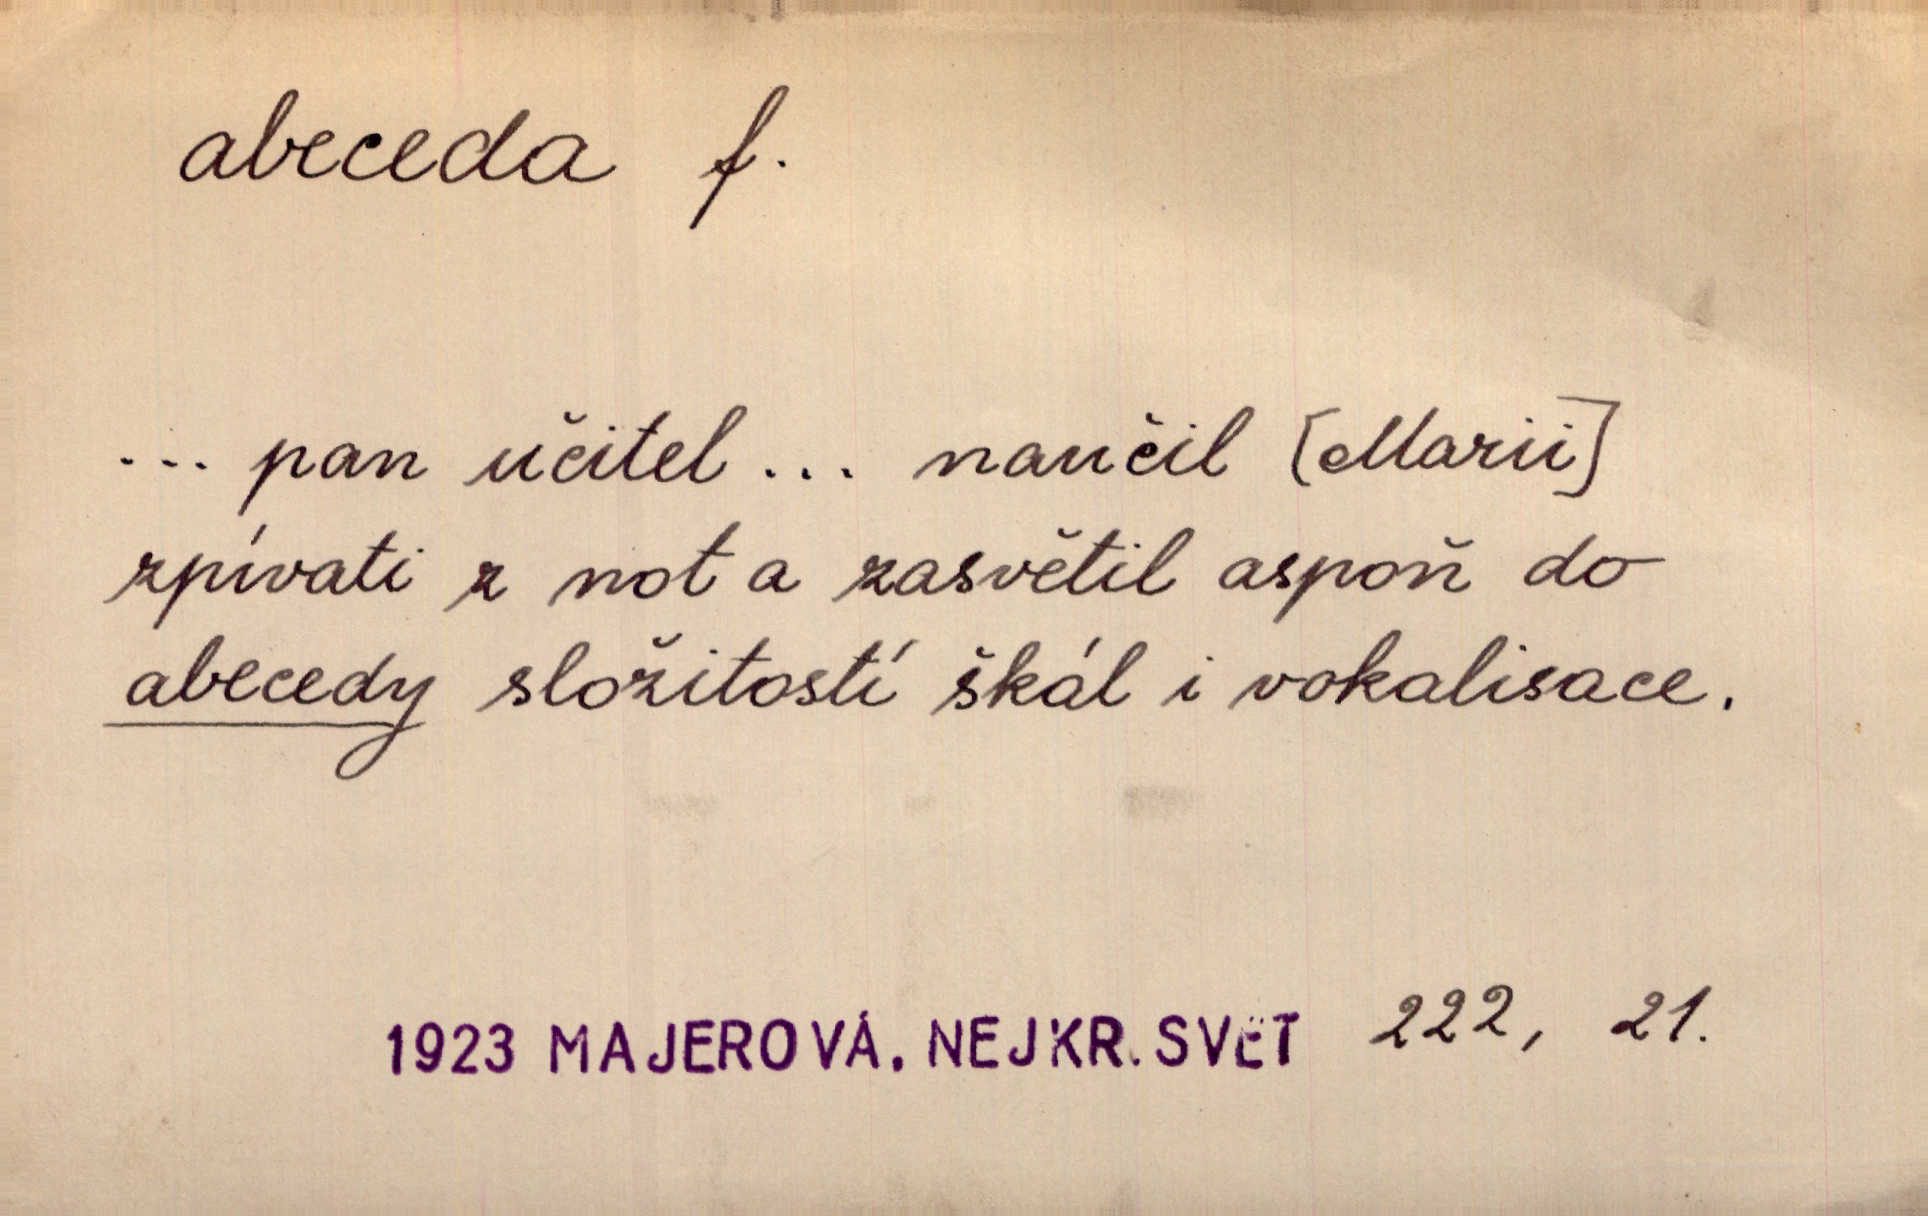 abeceda f.
... pan učitel ... naučil [Marii]
zpívati z not a zasvětil aspoň do
abecedy složitostí škál i vokalisace.
1923 MAJEROVÁ. NEJKR. SVĚT 222, 21.